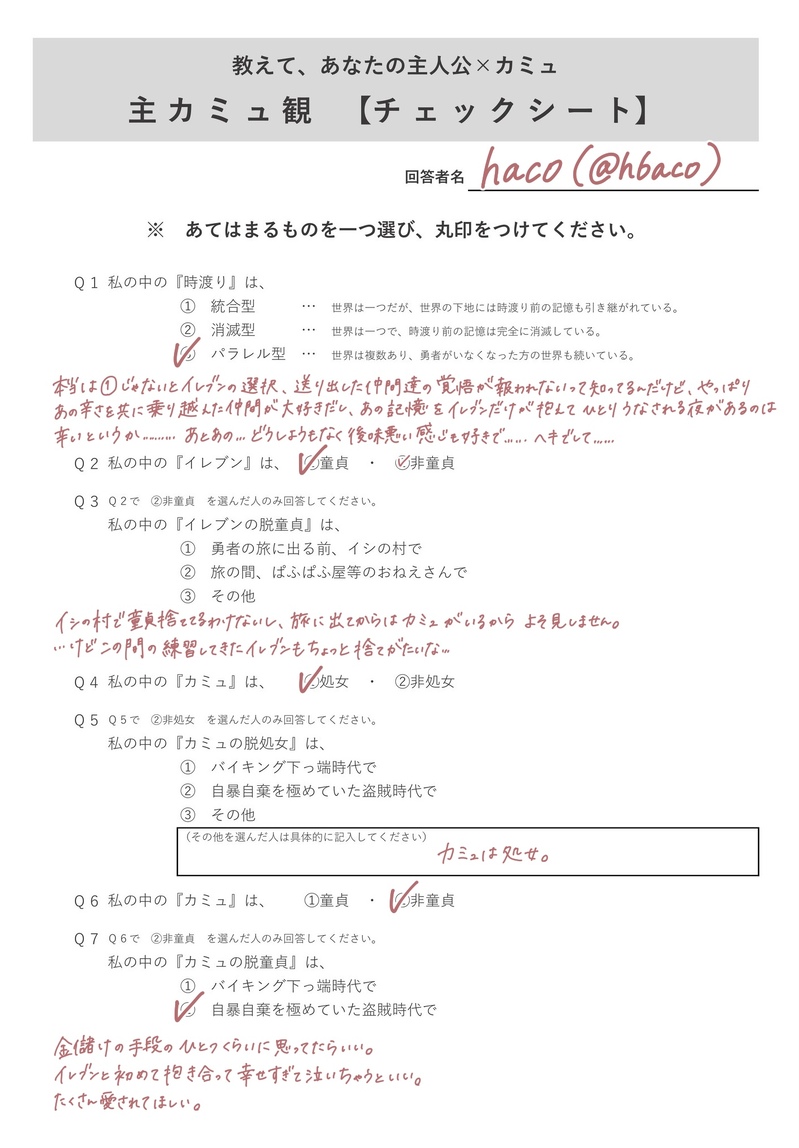 教えて、あなたの主人公×カミュ
主カミュ観 【チェックシート】
回答者名 haco(@h6aco)
※ あてはまるものを一つ選び、丸印をつけてください。
Q1 私の中の『時渡り』は、
① 統合型 … 世界は一つだが、世界の下地には時渡り前の記憶も引き継がれている。
② 消滅型 … 世界は一つで、時渡り前の記憶は完全に消滅している。
③ パラレル型 … 世界は複数あり、勇者がいなくなった方の世界も続いている。
本当は①じゃないとイレブンの選択、送り出した仲間達の覚悟が報われないって知ってるんだけど、やっぱり
あの辛さを共に乗り越えた仲間が大好きだし、あの記憶をイレブンだけが抱えてひとりうなされる夜があるのは
辛いというか………あとあの…どうしようもなく後味悪い感じも好きで……ヘキでして……
Q2 私の中の『イレブン』は、 ①童貞 ・ ②非童貞
Q3 Q2で ②非童貞 を選んだ人のみ回答してください。
私の中の『イレブンの脱童貞』は、
① 勇者の旅に出る前、イシの村で
② 旅の間、ぱふぱふ屋等のおねえさんで
③ その他
イシの村で童貞捨ててるわけないし、旅に出てからはカミュがいるからよそ見しません。
…けどこの間の練習してきたイレブンもちょっと捨てがたいな…
Q4 私の中の『カミュ』は、 ①処女 ・ ②非処女
Q5 Q5で ②非処女 を選んだ人のみ回答してください。
私の中の『カミュの脱処女』は、
① バイキング下っ端時代で
② 自暴自棄を極めていた盗賊時代で
③ その他
(その他を選んだ人は具体的に記入してください)
カミュは処女。
Q6 私の中の『カミュ』は、 ①童貞 ・ ②非童貞
Q7 Q6で ②非童貞 を選んだ人のみ回答してください。
私の中の『カミュの脱童貞』は、
① バイキング下っ端時代で
② 自暴自棄を極めていた盗賊時代で
金儲けの手段のひとつくらいに思ってたらいい。
イレブンと初めて抱き合って幸せすぎて泣いちゃうといい。
たくさん愛されてほしい。